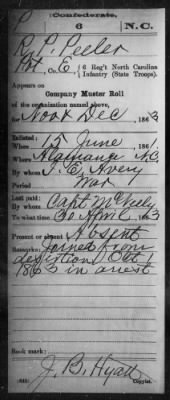 P
Confederate.
6 N.C.
R. P. Peeler
Pvt, Co. E, 6 Reg't North Carolina
Infantry (State Troops).
Appears on
Company Muster Roll
of the organization named above,
for Nov & Dec, 1863
Enlisted:
When 15 June, 1861.
Where Alamance N.C.
By whom I. E. Avery
Period War
Last paid:
By whom Capt McNeely
To what time 30 April, 1863
Present or absent Absent
Remarks: Joined from
desertion Oct 1
1863 in arrest
Book mark:
J. B. Hyatt
(642) Copyist.